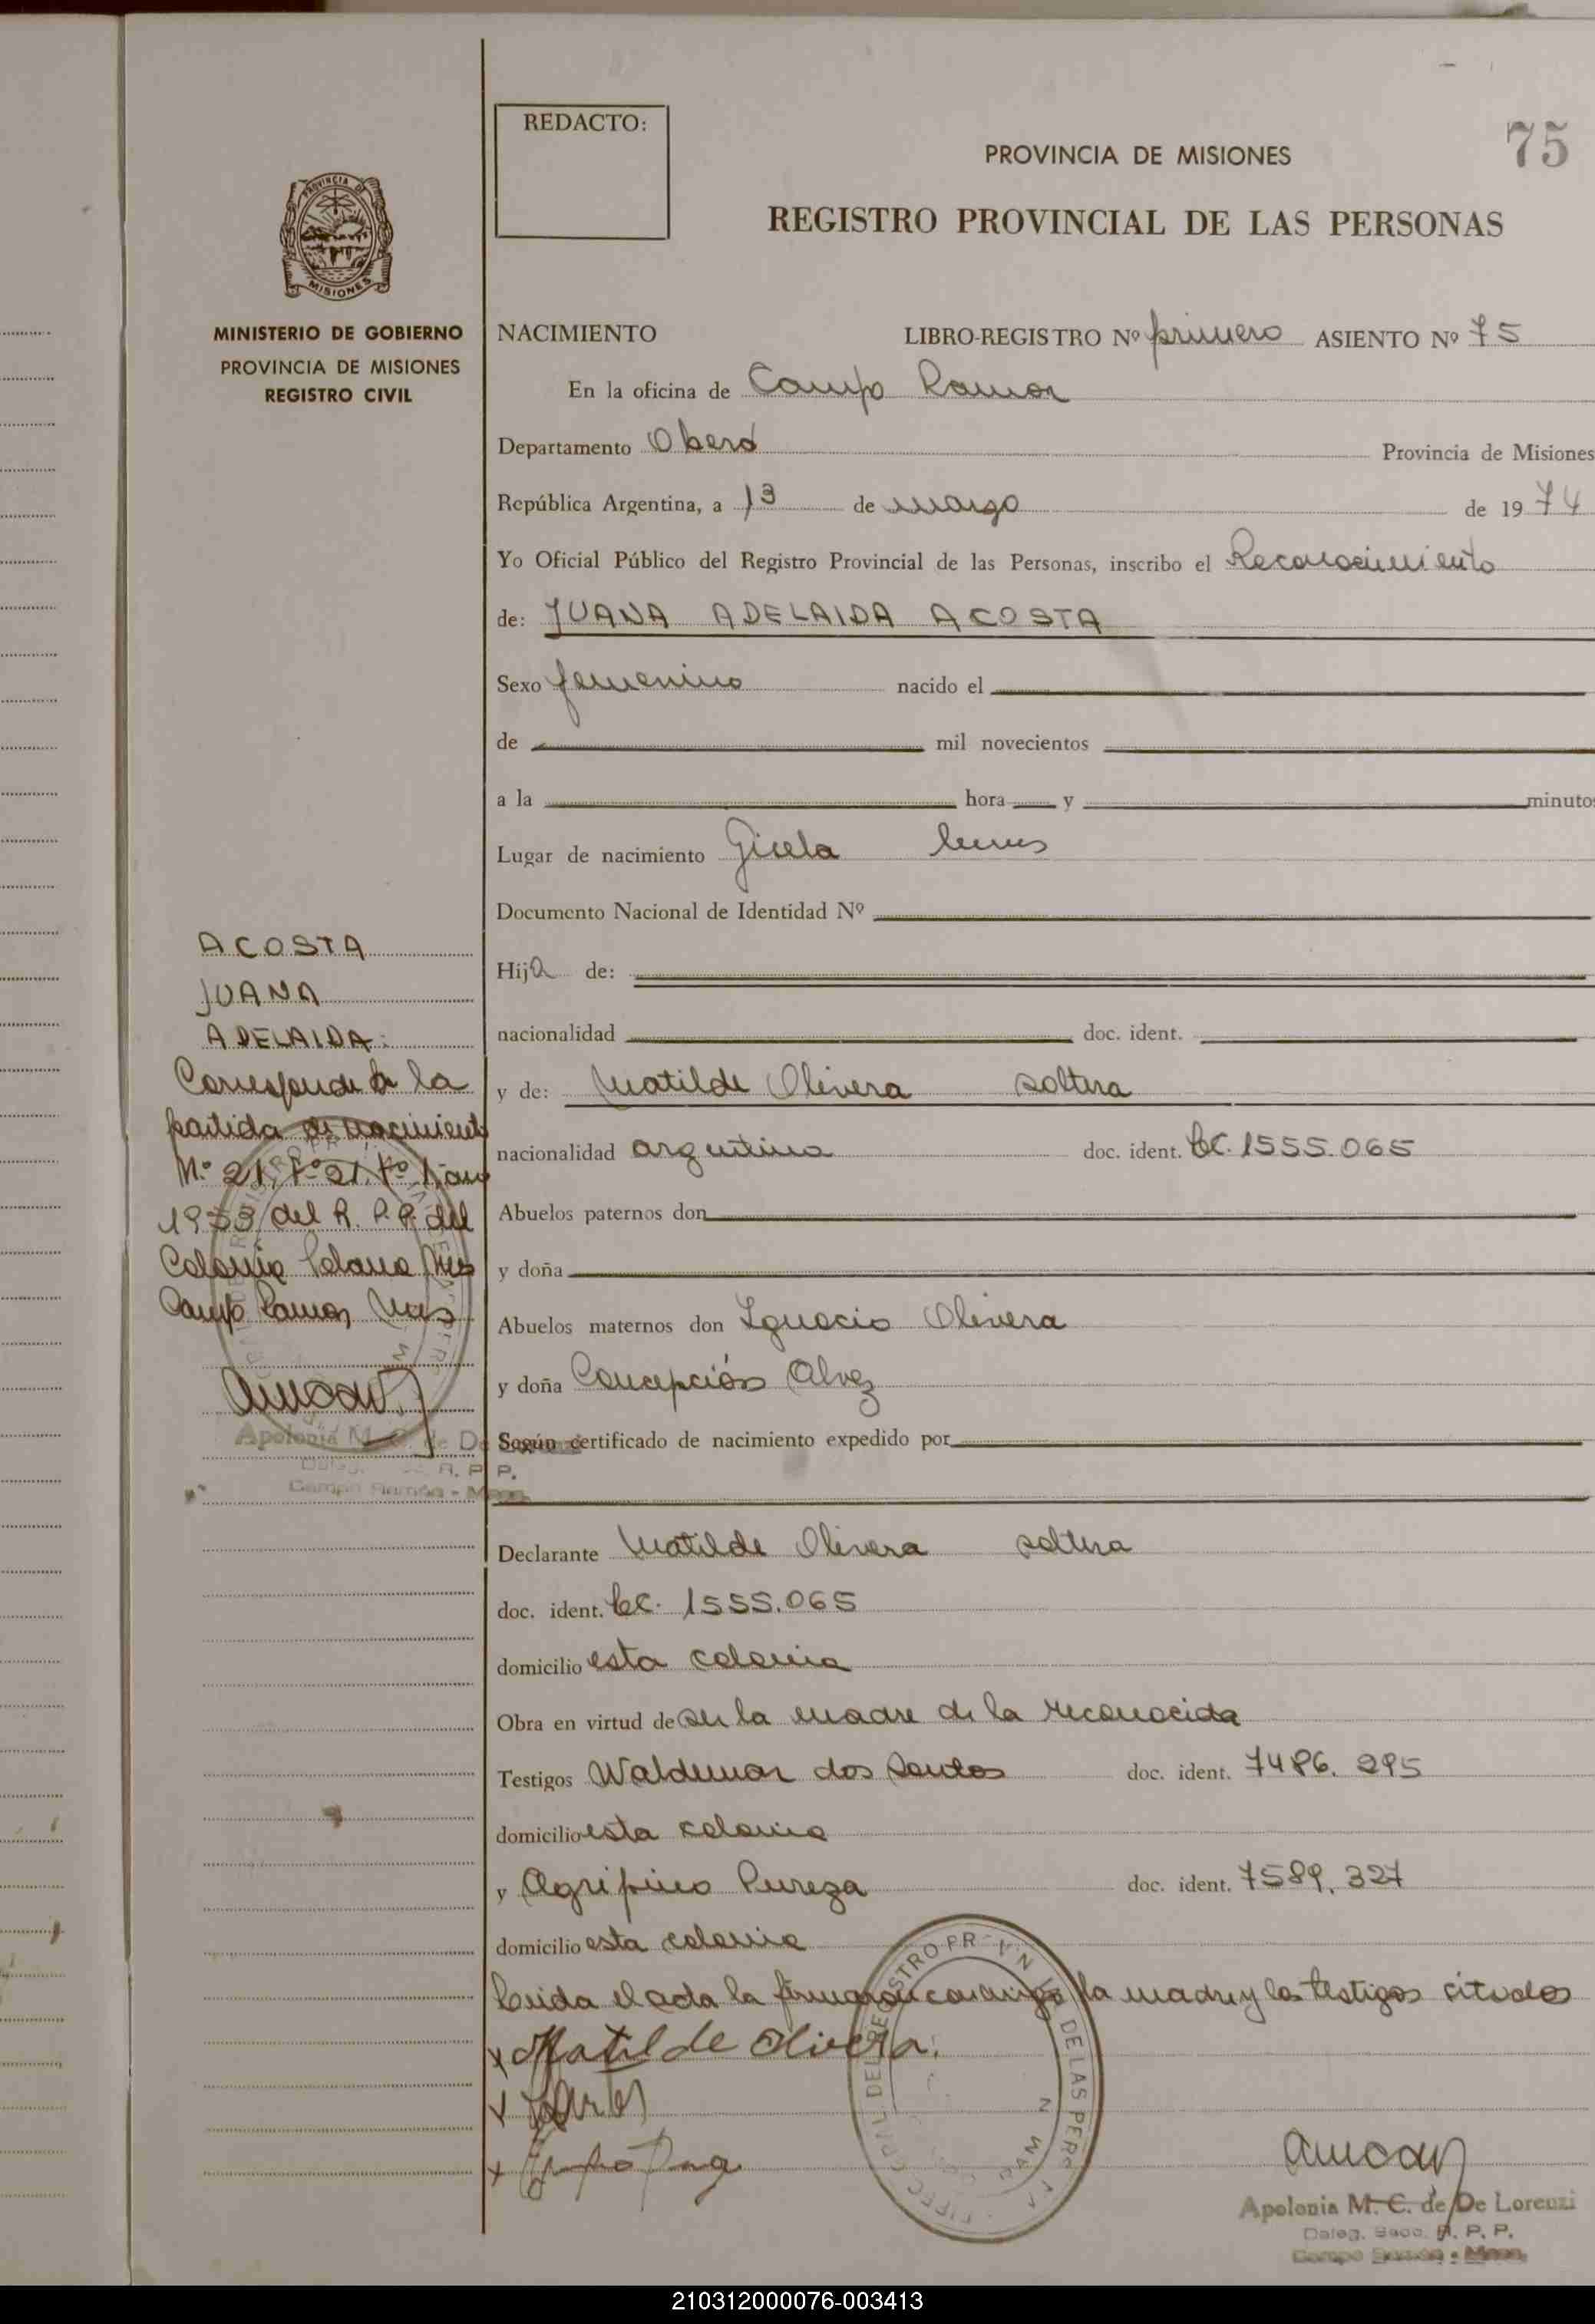 REDACTO:
PROVINCIA DE MISIONES
75
REGISTRO PROVINCIAL DE LAS PERSONAS
PROVINCIA DE
MISIONES
MINISTERIO DE GOBIERNO
PROVINCIA DE MISIONES
REGISTRO CIVIL
NACIMIENTO LIBRO-REGISTRO Nº primero ASIENTO Nº 75
En la oficina de Campo Ramon
Departamento Oberá Provincia de Misiones
República Argentina, a 13 de marzo de 1974
Yo Oficial Público del Registro Provincial de las Personas, inscribo el Reconocimiento
de: JUANA ADELAIDA ACOSTA
Sexo femenino nacido el
de mil novecientos
a la hora y minutos
Lugar de nacimiento
Documento Nacional de Identidad Nº
Hija de:
nacionalidad doc. ident.
y de: Matilde Olivera soltera
nacionalidad argentina doc. ident. 1555.065
Abuelos paternos don
y doña
Abuelos maternos don Ignacio Olivera
y doña Concepción Alvez
Según certificado de nacimiento expedido por
Declarante Matilde Olivera soltera
doc. ident. 1555.065
domicilio esta colonia
Obra en virtud de ser la madre de la reconocida
Testigos Waldemar dos Santos doc. ident. 7486.295
domicilio esta colonia
y Agripino Pureza doc. ident. 7589.327
domicilio esta colonia
Leida el acta la firmaron conmigo la madre y los testigos citados
x Matilde Olivera.
x
x
Apolonia M. C. de De Lorenzi
Deleg. Secc. R. P. P.
Campo Ramón - Mnes.
ACOSTA
JUANA
ADELAIDA:
Corresponde a la
partida de nacimiento
Nº 21, Fº 21, Tº 1, año
del R. P. P. del
Colonia
Campo Ramon
Apolonia M. C. de De
R. P. P.
Campo Ramón - Mnes.
210312000076-003413